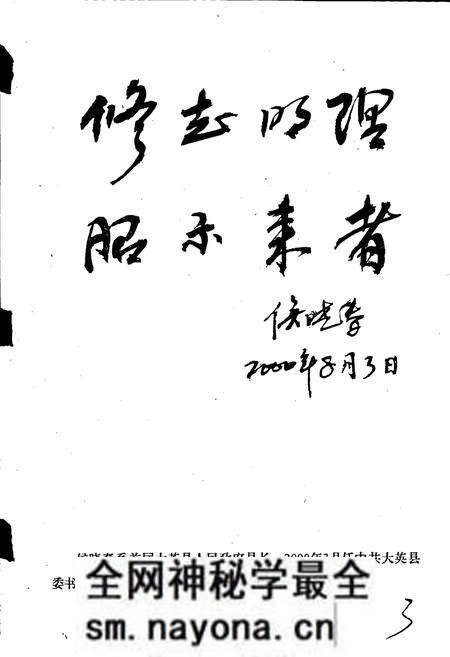 修志明理
昭示来者
侯晓春
2000年8月3日
系首届大英县人民政府县长，2000年3月任中共大英县
委书
全网神秘学最全
sm.nayona.cn
3